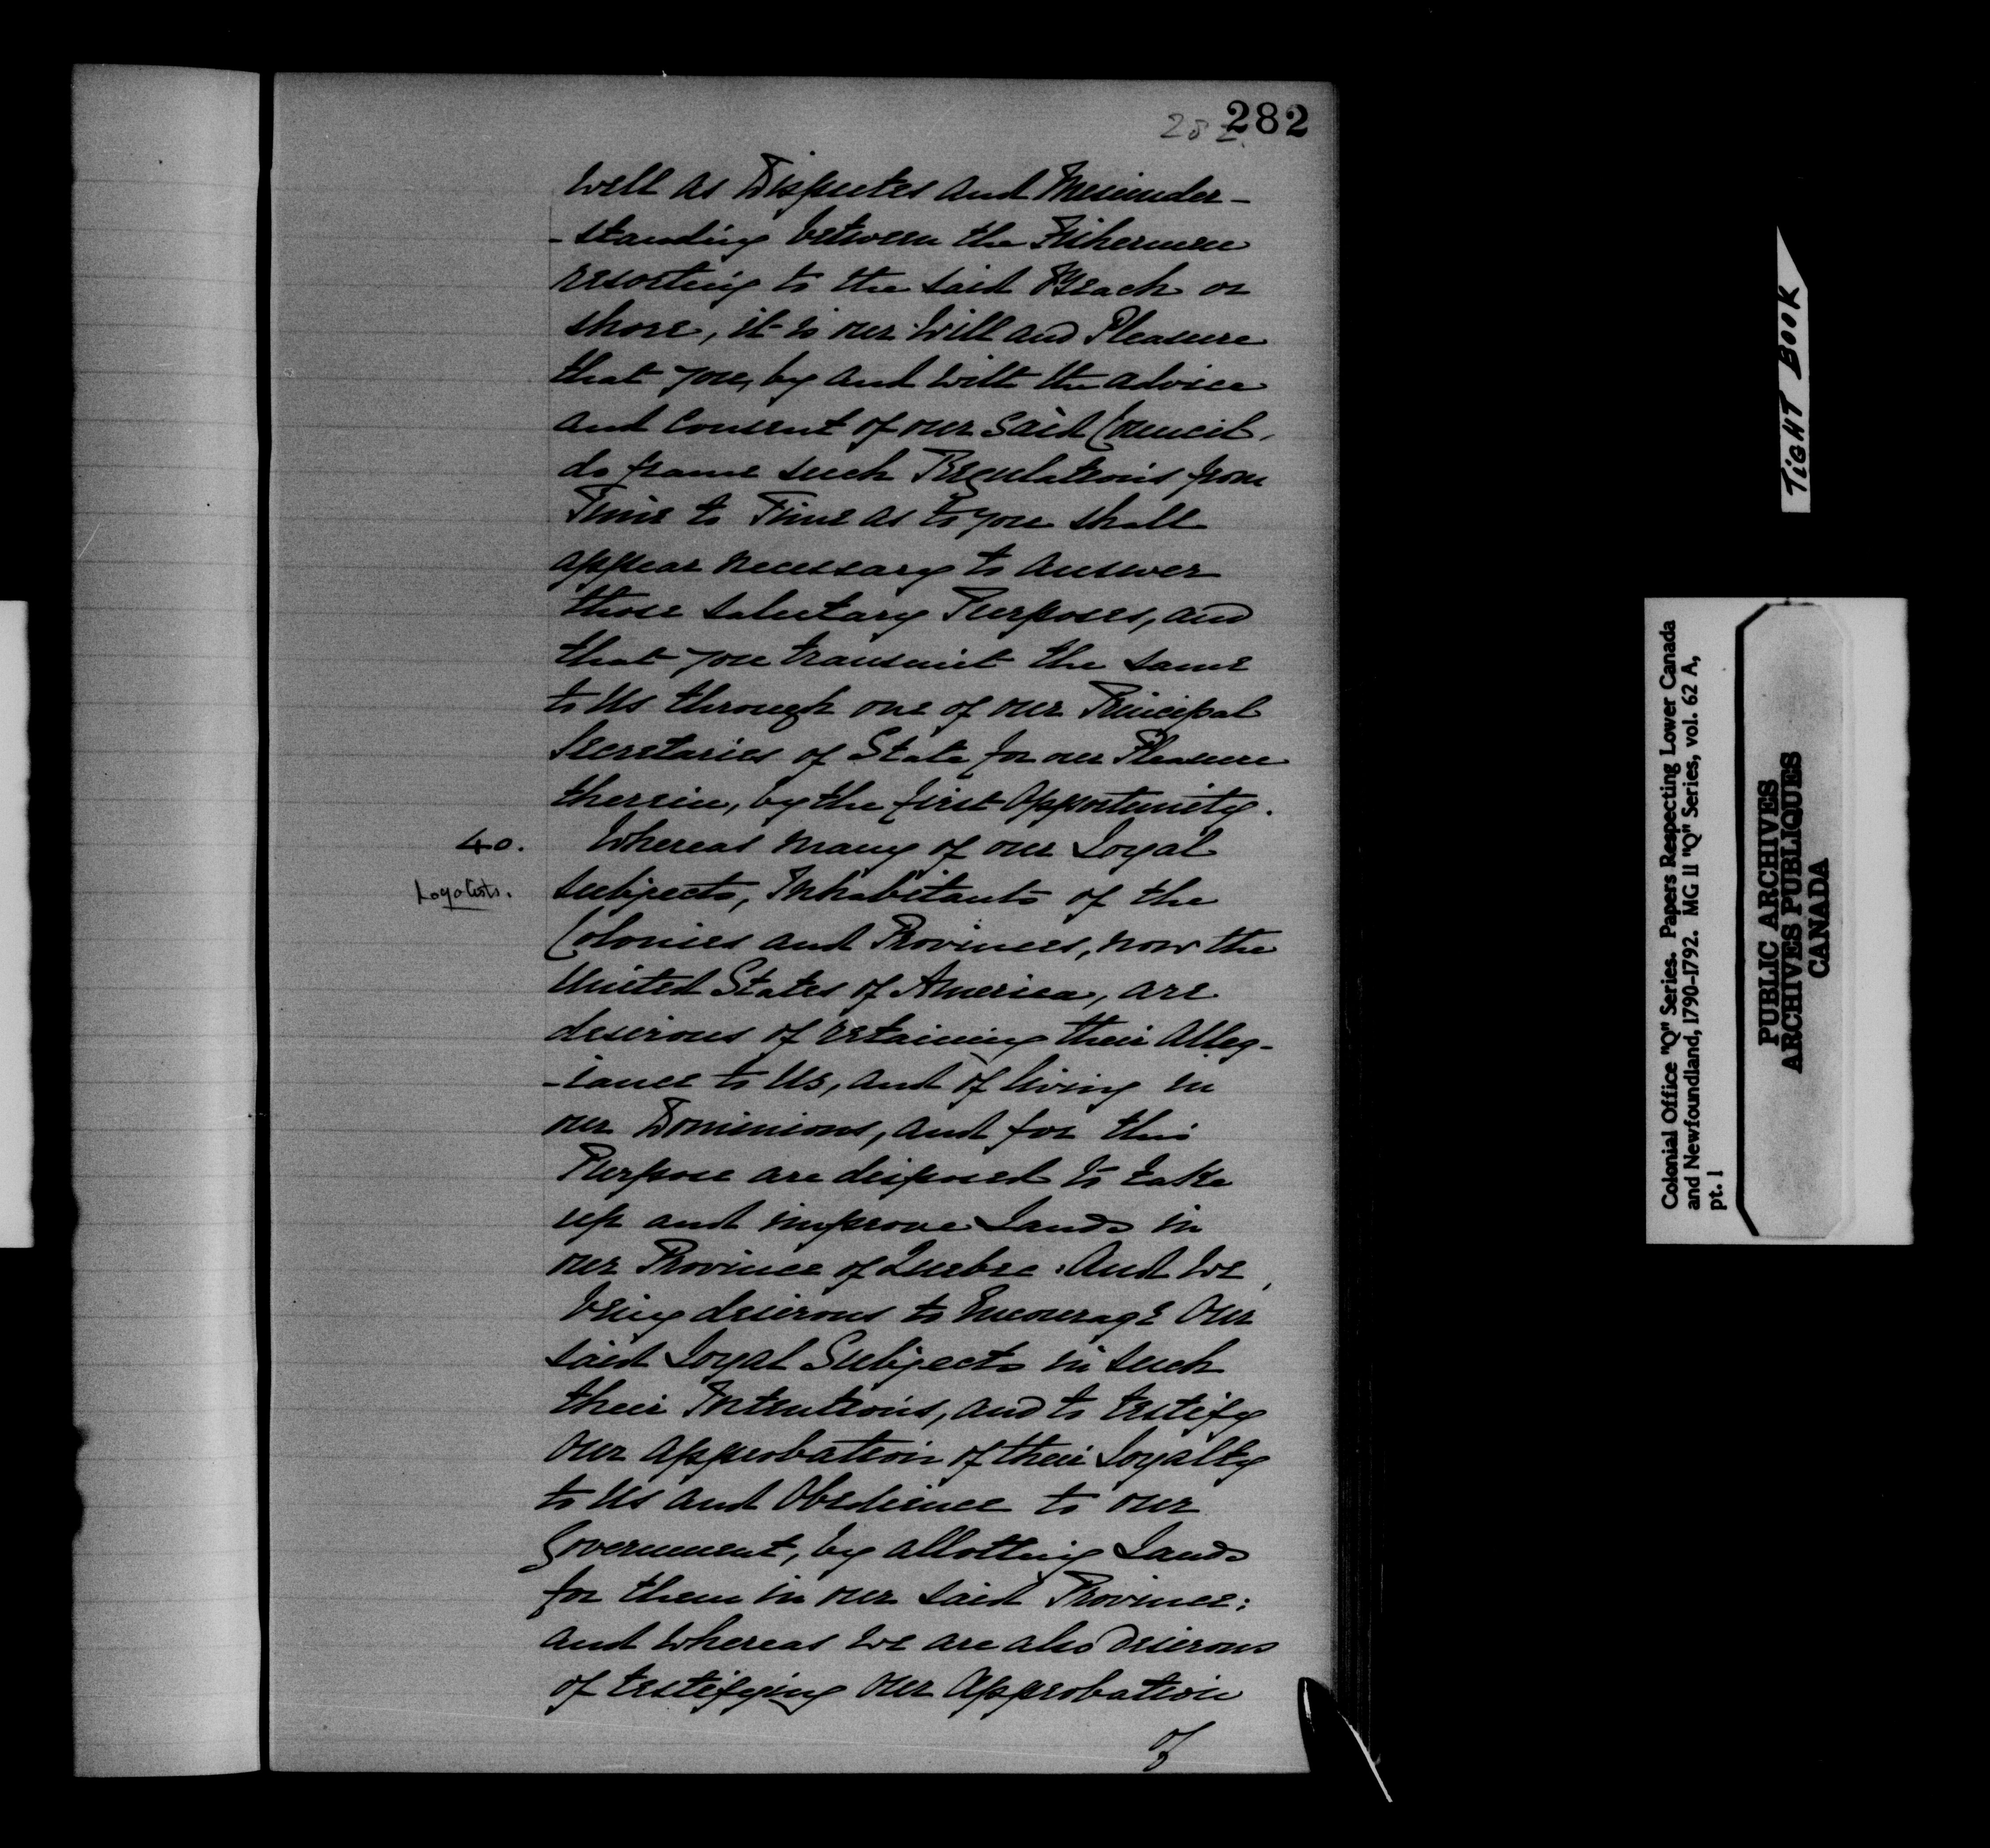 282
282.
well as Disputes and Misunder-
-standing between the Fishermen
resorting to the said Beach or
shore, it is our Will and Pleasure
that you, by and with the advice
and Consent of our said Council,
do frame such Regulations from
Time to Time as to you shall
appear necessary to answer
those salutary Purposes, and
that you transmit the same
to Us through one of our Principal
Secretaries of State for our Pleasure
therein, by the first Opportunity.
40. Whereas many of our Loyal
Loyalists. subjects, Inhabitants of the
Colonies and Provinces, now the
United States of America, are
desirous of retaining their Alleg-
-iance to Us, and of living in
our Dominions, and for this
Purpose are disposed to take
up and improve Lands in
our Province of Quebec: And We,
being desirous to Encourage Our
said Loyal Subjects in such
their Intentions, and to testify
Our approbation of their Loyalty
to Us and Obedience to our
Government, by allotting Lands
for them in our said Province:
and Whereas We are also Desirous
of testifying Our Approbation
of
TiGHT BOOK
Colonial Office "Q" Series. Papers Respecting Lower Canada
and Newfoundland, 1790-1792. MG 11 "Q" Series, vol. 62 A,
pt. 1
PUBLIC ARCHIVES
ARCHIVES PUBLIQUES
CANADA